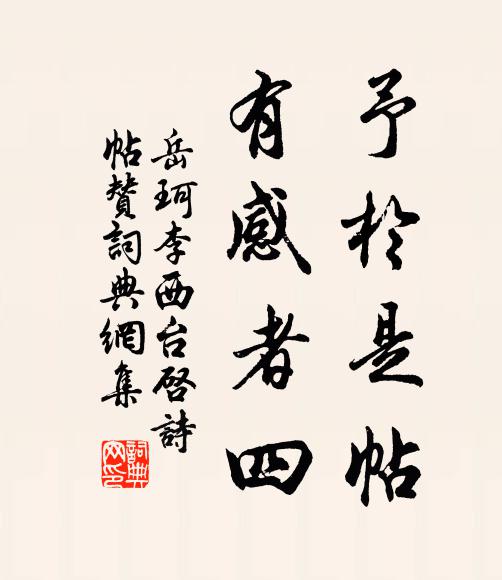 予於是帖
有感者四
岳珂李西台啓詩
帖贊詞典網集
詞典網印